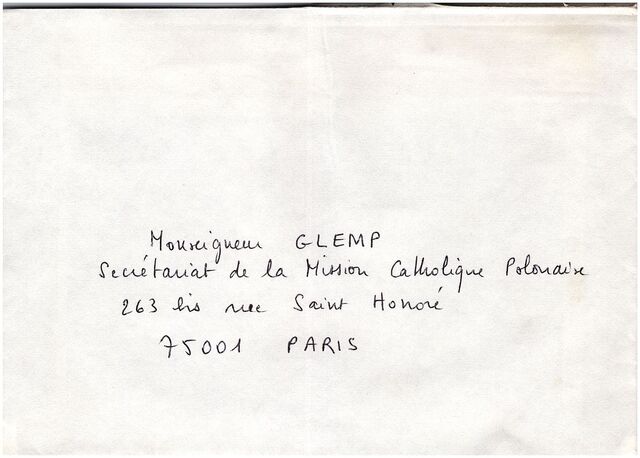 Monseigneur GLEMP
Secrétariat de la Mission Catholique Polonaise
263 bis rue Saint Honoré
75001 PARIS